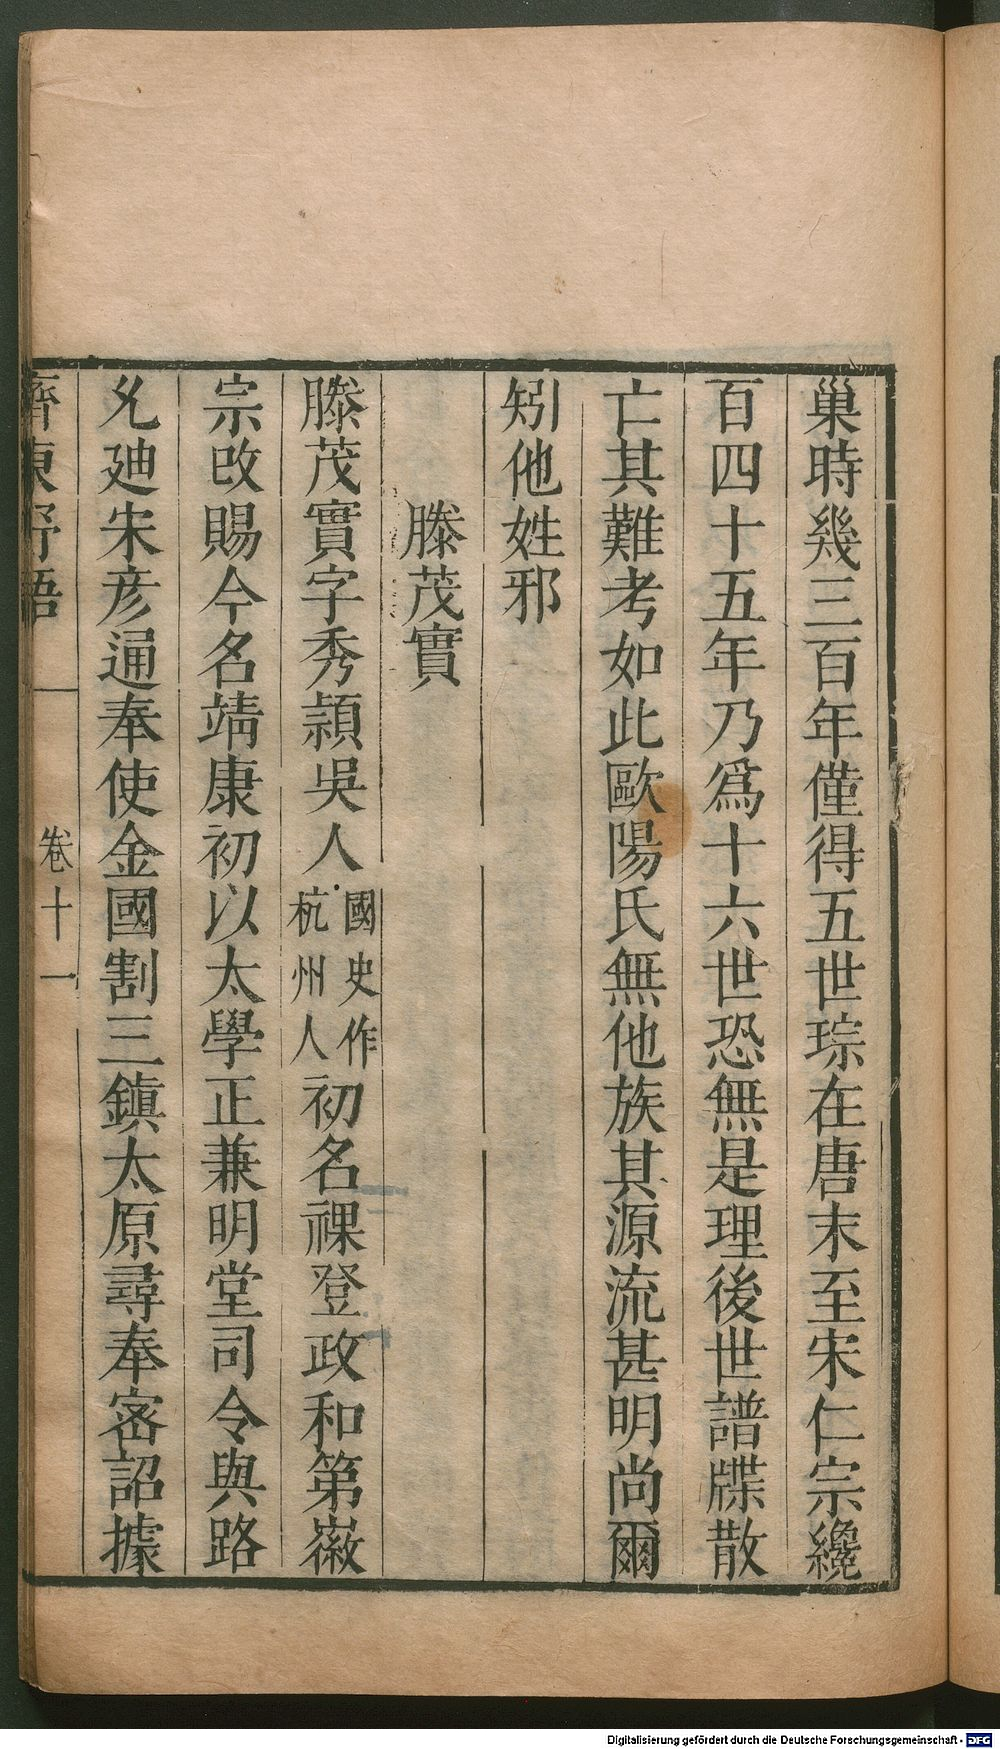 巢時幾三百年僅得五世琮在唐末至宋仁宗纔
百四十五年乃爲十六世恐無是理後世譜牒散
亡其難考如此歐陽氏無他族其源流甚明尚爾
矧他姓邪
滕茂實
滕茂實字秀穎吳人國史作杭州人初名祼登政和第徽
宗改賜今名靖康初以太學正兼明堂司令與路
允廸宋彥通奉使金國割三鎮太原尋奉密詔據
齊東野語
卷十一
Digitalisierung gefördert durch die Deutsche Forschungsgemeinschaft - DFG